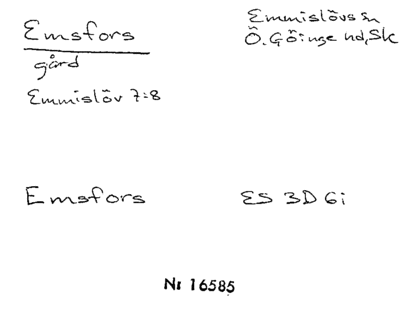 Emsfors
gård
Emmislöv 7:8
Emmislövs sn
Ö. Göinge hd, Sk
Emsfors
ES 3D 6i
Nr 16585